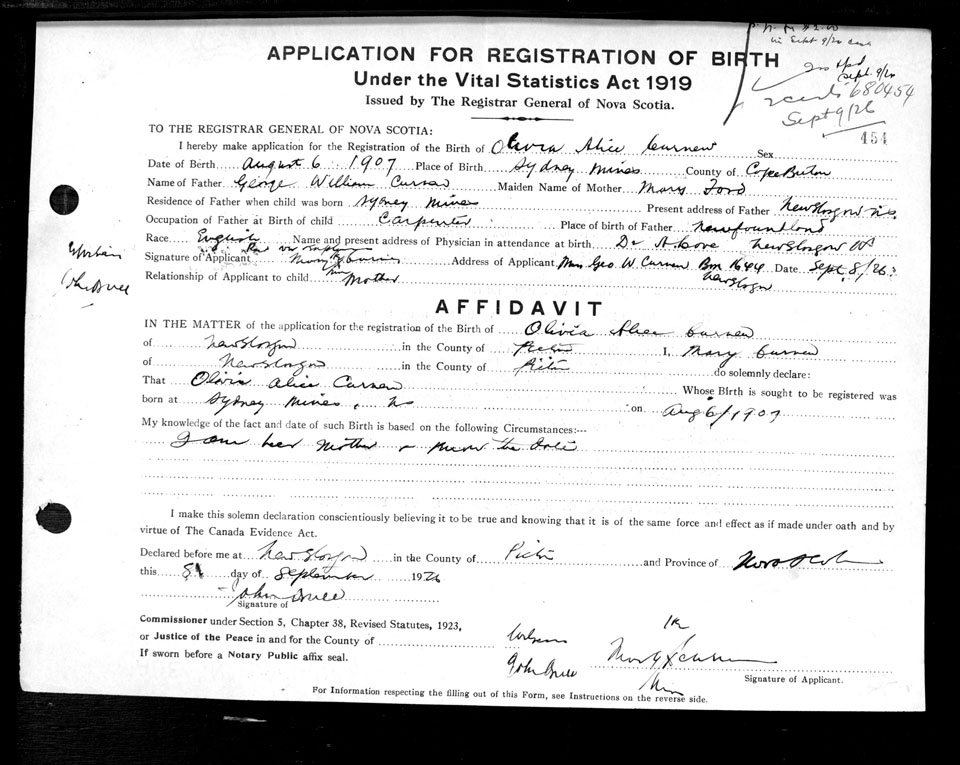 in Sept 9/26
APPLICATION FOR REGISTRATION OF BIRTH
Under the Vital Statistics Act 1919
Sept. 9/26
Issued by The Registrar General of Nova Scotia.
2 certs 680454
Sept 9/26
454
TO THE REGISTRAR GENERAL OF NOVA SCOTIA:
I hereby make application for the Registration of the Birth of Olivia Alice Curnew Sex
Date of Birth August 6 1907 Place of Birth Sydney Mines County of Cape Breton
Name of Father George William Curnew Maiden Name of Mother Mary Ford
Residence of Father when child was born Sydney Mines Present address of Father New Glasgow N.S.
Occupation of Father at Birth of child Carpenter Place of birth of Father Newfoundland
Race English Name and present address of Physician in attendance at birth Dr New Glasgow NS
Witness
John Bruce
Signature of Applicant Mary X Address of Applicant Mrs Geo W Curnew Box 1644 New Glasgow Date Sept. 8/26
Relationship of Applicant to child Mother
AFFIDAVIT
IN THE MATTER of the application for the registration of the Birth of Olivia Alice Curnew
of New Glasgow in the County of Pictou I, Mary Curnew
of New Glasgow in the County of Pictou do solemnly declare:
That Olivia Alice Curnew Whose Birth is sought to be registered was
born at Sydney Mines, NS on Aug 6/1907
My knowledge of the fact and date of such Birth is based on the following Circumstances:---
I am her Mother & know the Date
I make this solemn declaration conscientiously believing it to be true and knowing that it is of the same force and effect as if made under oath and by
virtue of The Canada Evidence Act.
Declared before me at New Glasgow in the County of Pictou and Province of Nova Scotia
this 8 day of September 1926
John Bruce
Signature of
Commissioner under Section 5, Chapter 38, Revised Statutes, 1923,
or Justice of the Peace in and for the County of
If sworn before a Notary Public affix seal.
Witness
John Bruce
Mary X Curnew
Signature of Applicant.
For Information respecting the filling out of this Form, see Instructions on the reverse side.